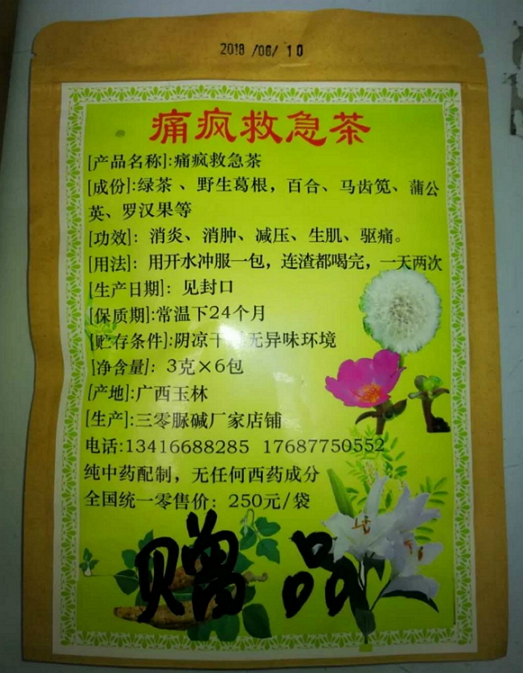 2018 /06/ 10
痛疯救急茶
[产品名称]:痛疯救急茶
[成份]:绿茶、野生葛根，百合、马齿笕、蒲公
英、罗汉果等
[功效]：消炎、消肿、减压、生肌、驱痛。
[用法]：用开水冲服一包，连渣都喝完，一天两次
[生产日期]：见封口
[保质期]:常温下24个月
[贮存条件]:阴凉干 无异味环境
[净含量]：3克×6包
[产地]:广西玉林
[生产]:三零脲碱厂家店铺
电话:13416688285 17687750552
纯中药配制，无任何西药成分
全国统一零售价：250元/袋
赠品